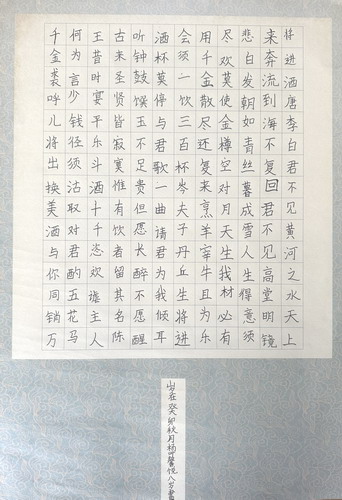 将进酒唐李白君不见黄河之水天上
来奔流到海不复回君不见高堂明镜
悲白发朝如青丝暮成雪人生得意须
尽欢莫使金樽空对月天生我材必有
用千金散尽还复来烹羊宰牛且为乐
会须一饮三百杯岑夫子丹丘生将进
酒杯莫停与君歌一曲请君为我倾耳
听钟鼓馔玉不足贵但愿长醉不愿醒
古来圣贤皆寂寞惟有饮者留其名陈
王昔时宴平乐斗酒十千恣欢谑主人
何为言少钱径须沽取对君酌五花马
千金裘呼儿将出换美酒与你同销万
岁在癸卯秋月杨馨悦八岁書